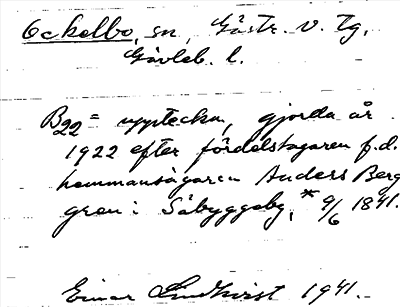 Ockelbo, sn, Gästr. v. Tg.
Gävleb. l.
B22 = uppteckn, gjorda år
1922 efter fördelstagaren f.d.
hemmansägaren Anders Berg
gren i Säbyggeby, * 9/6 1841.
Einar Lindkvist 1941.